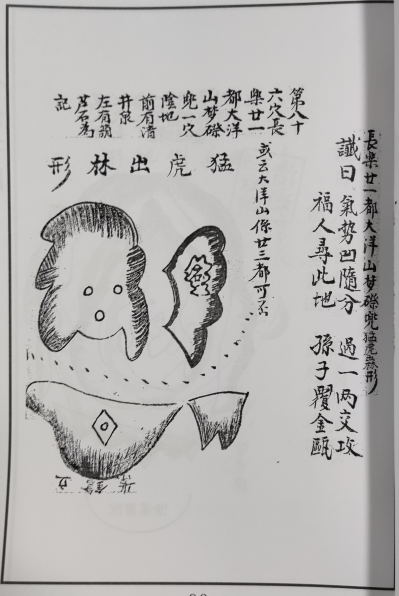 長樂廿一都大洋山夢磜兜猛虎出林形
讖曰 氣勢凹隨分 過一两交攻
福人尋此地 孫子覆金甌
或云大洋山係廿三都可
第八十
六穴長
樂廿一
都大洋
山夢磜
兜一穴
陰地
前有清
井泉
左有蘋
芦石為
記
猛虎出林形